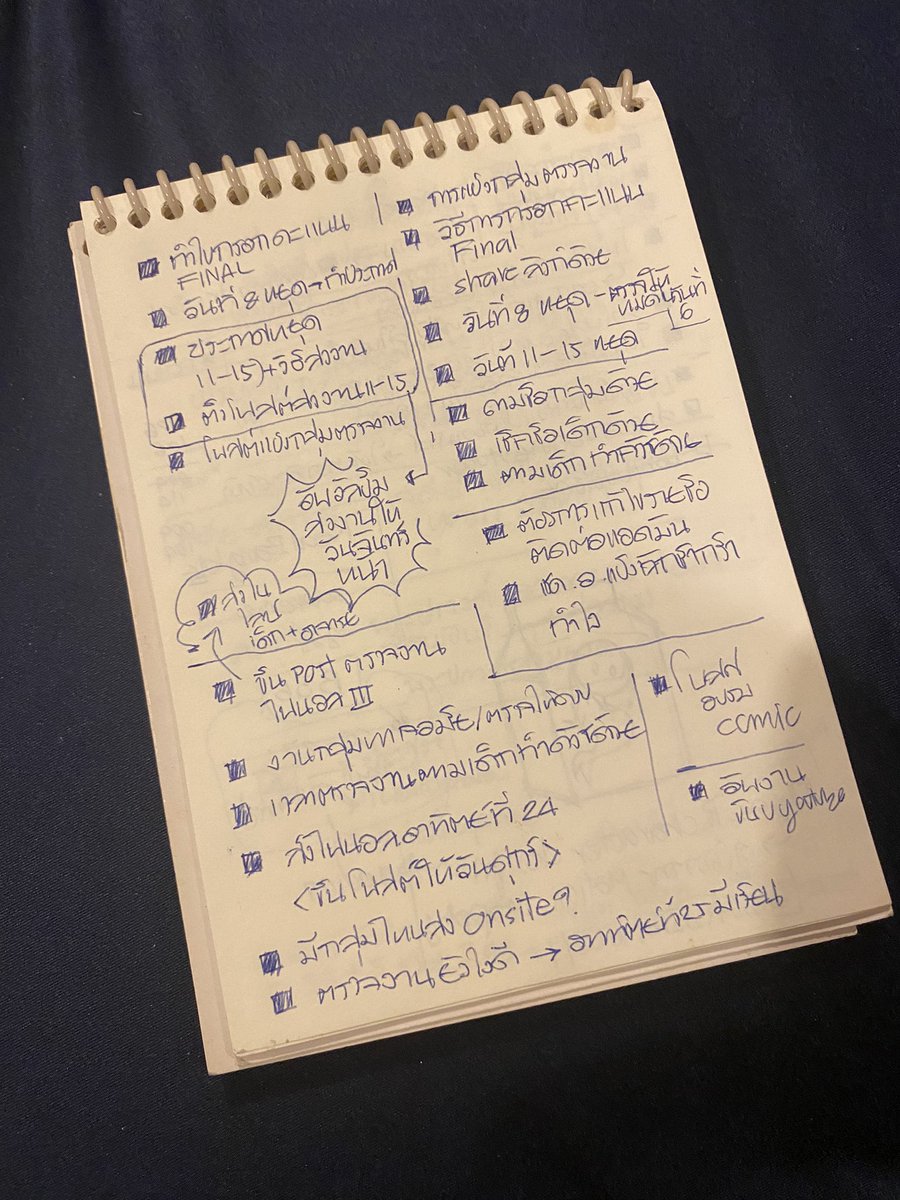 ทำใบกรอกคะแนน
FINAL
วันที่ 8 หยุด → ทำประกาศ
ประกาศหยุด
11-15) + วิธีส่งงาน
ตัวโพสต์ส่งงาน 11-15
โพสต์แบ่งกลุ่มตรวจงาน
ส่งงานให้
วันจันทร์
หน้า
ส่งใน
เด็ก + อาจารย์
การแบ่งกลุ่มตรวจงาน
วิธีการกรอกคะแนน
Final
share ลิงก์ด้วย
วันที่ 8 หยุด - ตรวจให้
หมดในวันที่
6
วันที่ 11-15 หยุด
ตามชื่อกลุ่มด้วย
เช็คชื่อเด็กด้วย
ตามเด็กทำด้วย
ต้องการแก้ไขรายชื่อ
ติดต่อแอดมิน
ขึ้น Post ตรวจงาน
ไฟนอล III
งานกลุ่ม /ตรวจให้ครบ
เวลาตรวจงานตามเด็กทำด้วย
ส่งไฟนอล อาทิตย์ที่ 24
<ขึ้นโพสต์ให้วันศุกร์>
มีกลุ่มไหนส่ง onsite?
ตรวจงานยังไงดี → อาทิตย์ที่ มีเรียน
โพสต์
อบรม
comic